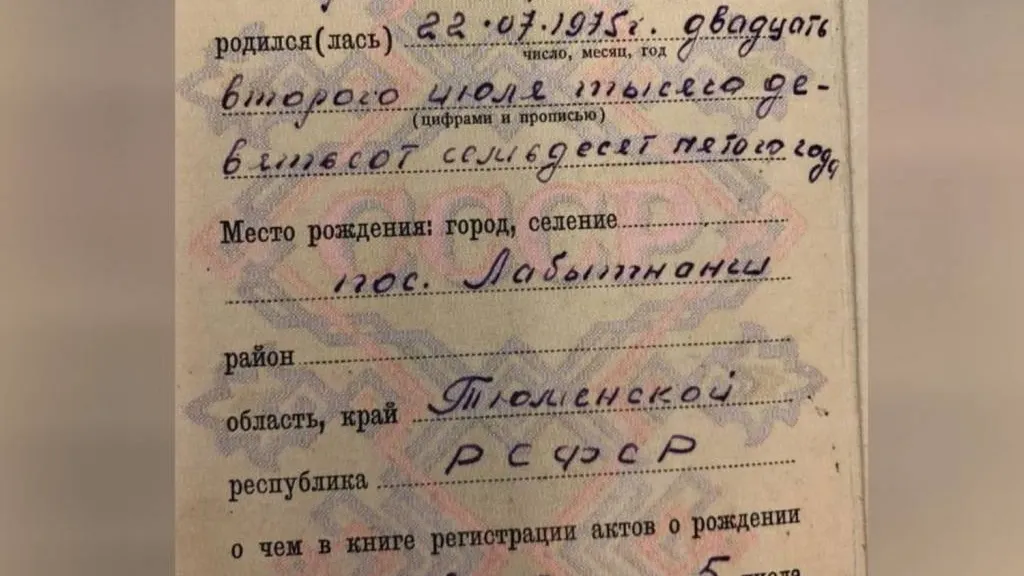 родился(лась) 22.07.1975г. двадцать
число, месяц, год
второго июля тысяча де-
(цифрами и прописью)
вятьсот семьдесят пятого года
СССР
Место рождения: город, селение
пос. Лабытнанги
район
область, край Тюменской
республика РСФСР
о чем в книге регистрации актов о рождении
5 числа